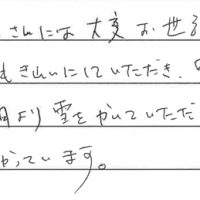 さんには大変お世
きれいにしていただき、
月より雪をかいていただ
かっています。